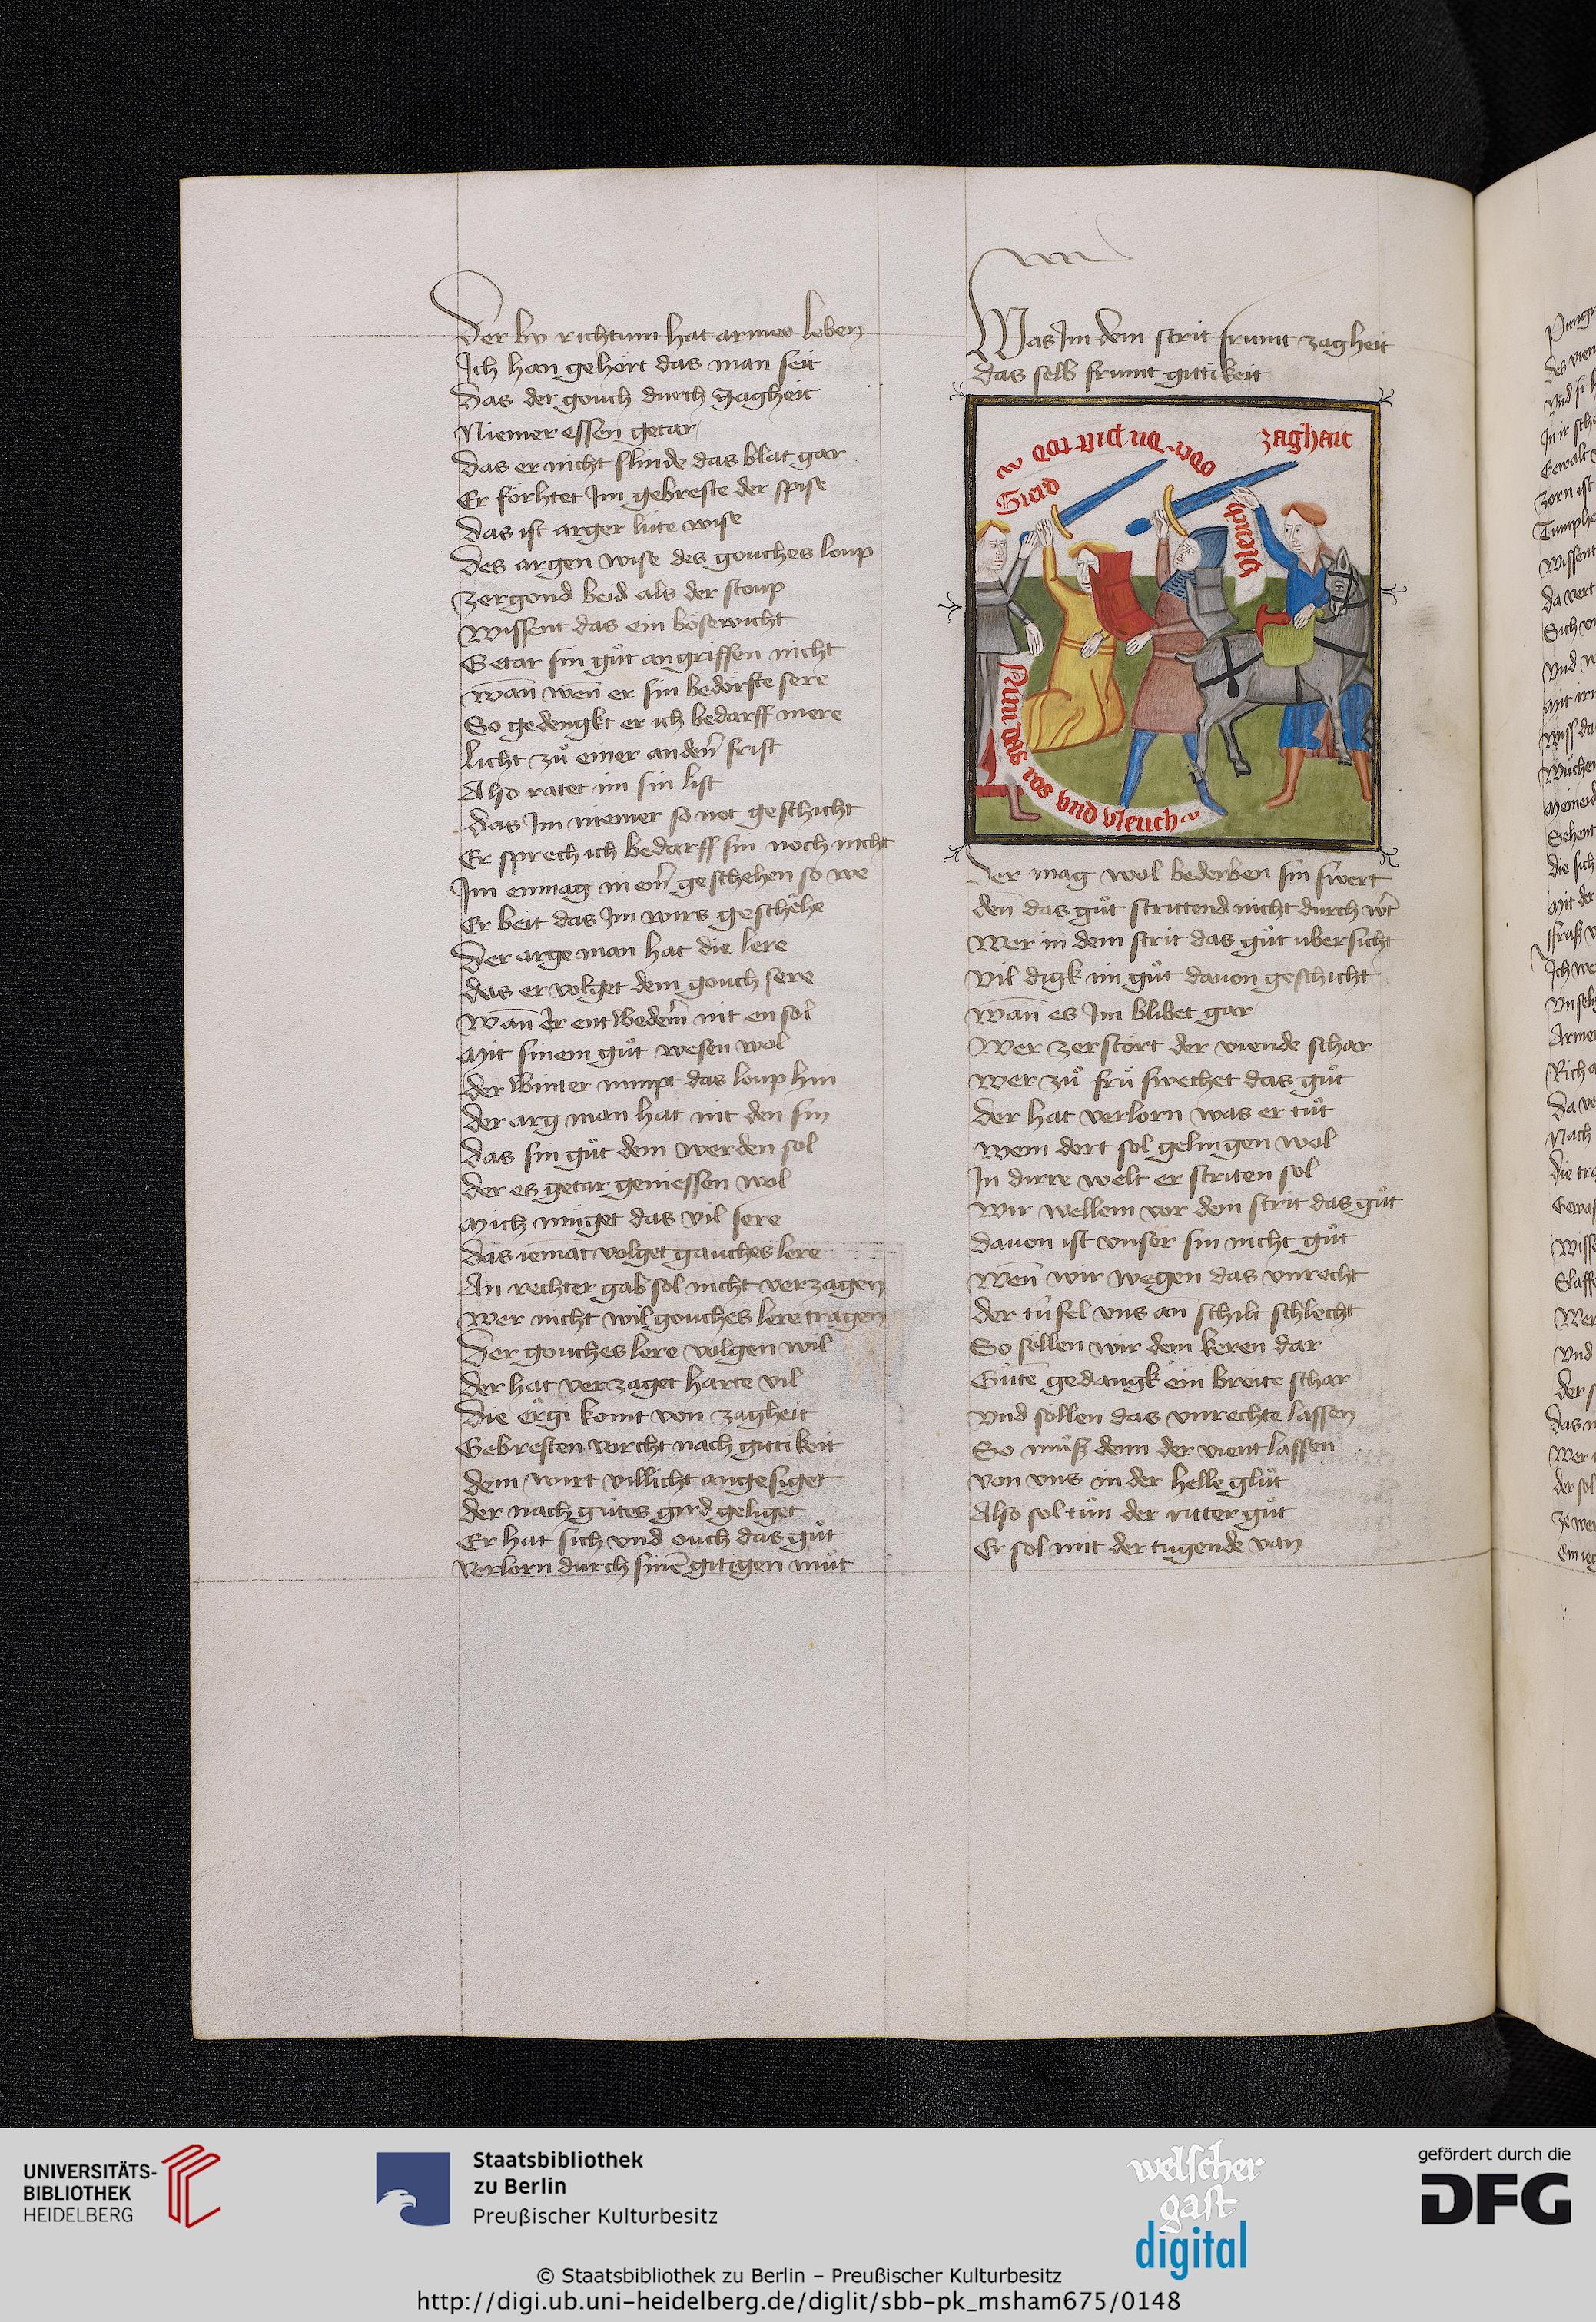 Der by richtum hat armes leben
Ich han gehört das man seit
Das der gouch durch zagheit
Niemer essen getar
Das er nicht slinde das blat gar
Er förhtet Im gebreste der spise
Das ist arger lüte wise
Des argen wise des gouches loup
Zergond beid als der stoup
Wissent das ein bösewicht
Getar sin gůt angriffen nicht
Wan̄ wen̄ er sin bedörfte sere
So gedengkt er ich bedarff mere
Licht zů einer anden̄ frist
Also ratet im sin list
Das Im niemer so not geschicht
Er sprech ich bedarff sin noch nicht
Im enmag niem̄ geschehen so we
Er beit das Im wirs geschehe
Der arge man hat die lere
Das er volget dem gouch sere
Wan̄ Er entwedem̄ nit en sol
Mit sinem gůt wesen wol
Der winter nimpt das loup hin
Der arg man hat nit den sin
Das sin gůt dem werden sol
Der es getar geniessen wol
Mich müget das vil sere
Das ieman̄t volget gauches lere
An rechter gab sol nicht verzagen
Wer nicht wil gouches lere tragen
Der gouches lere volgen wil
Der hat verzaget harte vil
Die ërgi komt von zagheit
Gebresten vorcht nach gittikeit
Dem wirt villicht angesiget
Der nach gůtes gird geliget
Er hat sich vnd ouch das gůt
Verlorn durch sinē gitigen můt
Was Im dem strit frumt zagheit
das selb frumt gittikeit
oder du pist tod
zaghait
Gierd
vleuch
Nim das ros vnd vleuch
Der mag wol bederben sin swert
den̄ das gůt strittend nicht durch wt̄
Wer in dem strit das gůt ubersicht
Vil digk im gůt dauon geschicht
Wan̄ es Im blibet gar
Wer zerstört der viende schar
Wer zů frů swechet das gůt
Der hat verlorn was er tůt
Wem dort sol gelingen wol
In dirre welt er striten sol
Wir wellem vor dem strit das gůt
Dauon ist vnser sin nicht gůt
Wen̄ wir wegen das vnrecht
der tüfel vns an schilt schlecht
So söllen wir dem keren dar
Gůte gedangk ein breite schar
Vnd söllen das vnrechte lassen
So můß denn der vient lassen
von vns in der helle glůt
Also sol tůn der ritter gůt
Er sol mit der tugende van
UNIVERSITÄTS-
BIBLIOTHEK
HEIDELBERG
Staatsbibliothek
zu Berlin
Preußischer Kulturbesitz
welscher
gast
digital
gefördert durch die
DFG
© Staatsbibliothek zu Berlin – Preußischer Kulturbesitz
http://digi.ub.uni-heidelberg.de/diglit/sbb-pk_msham675/0148